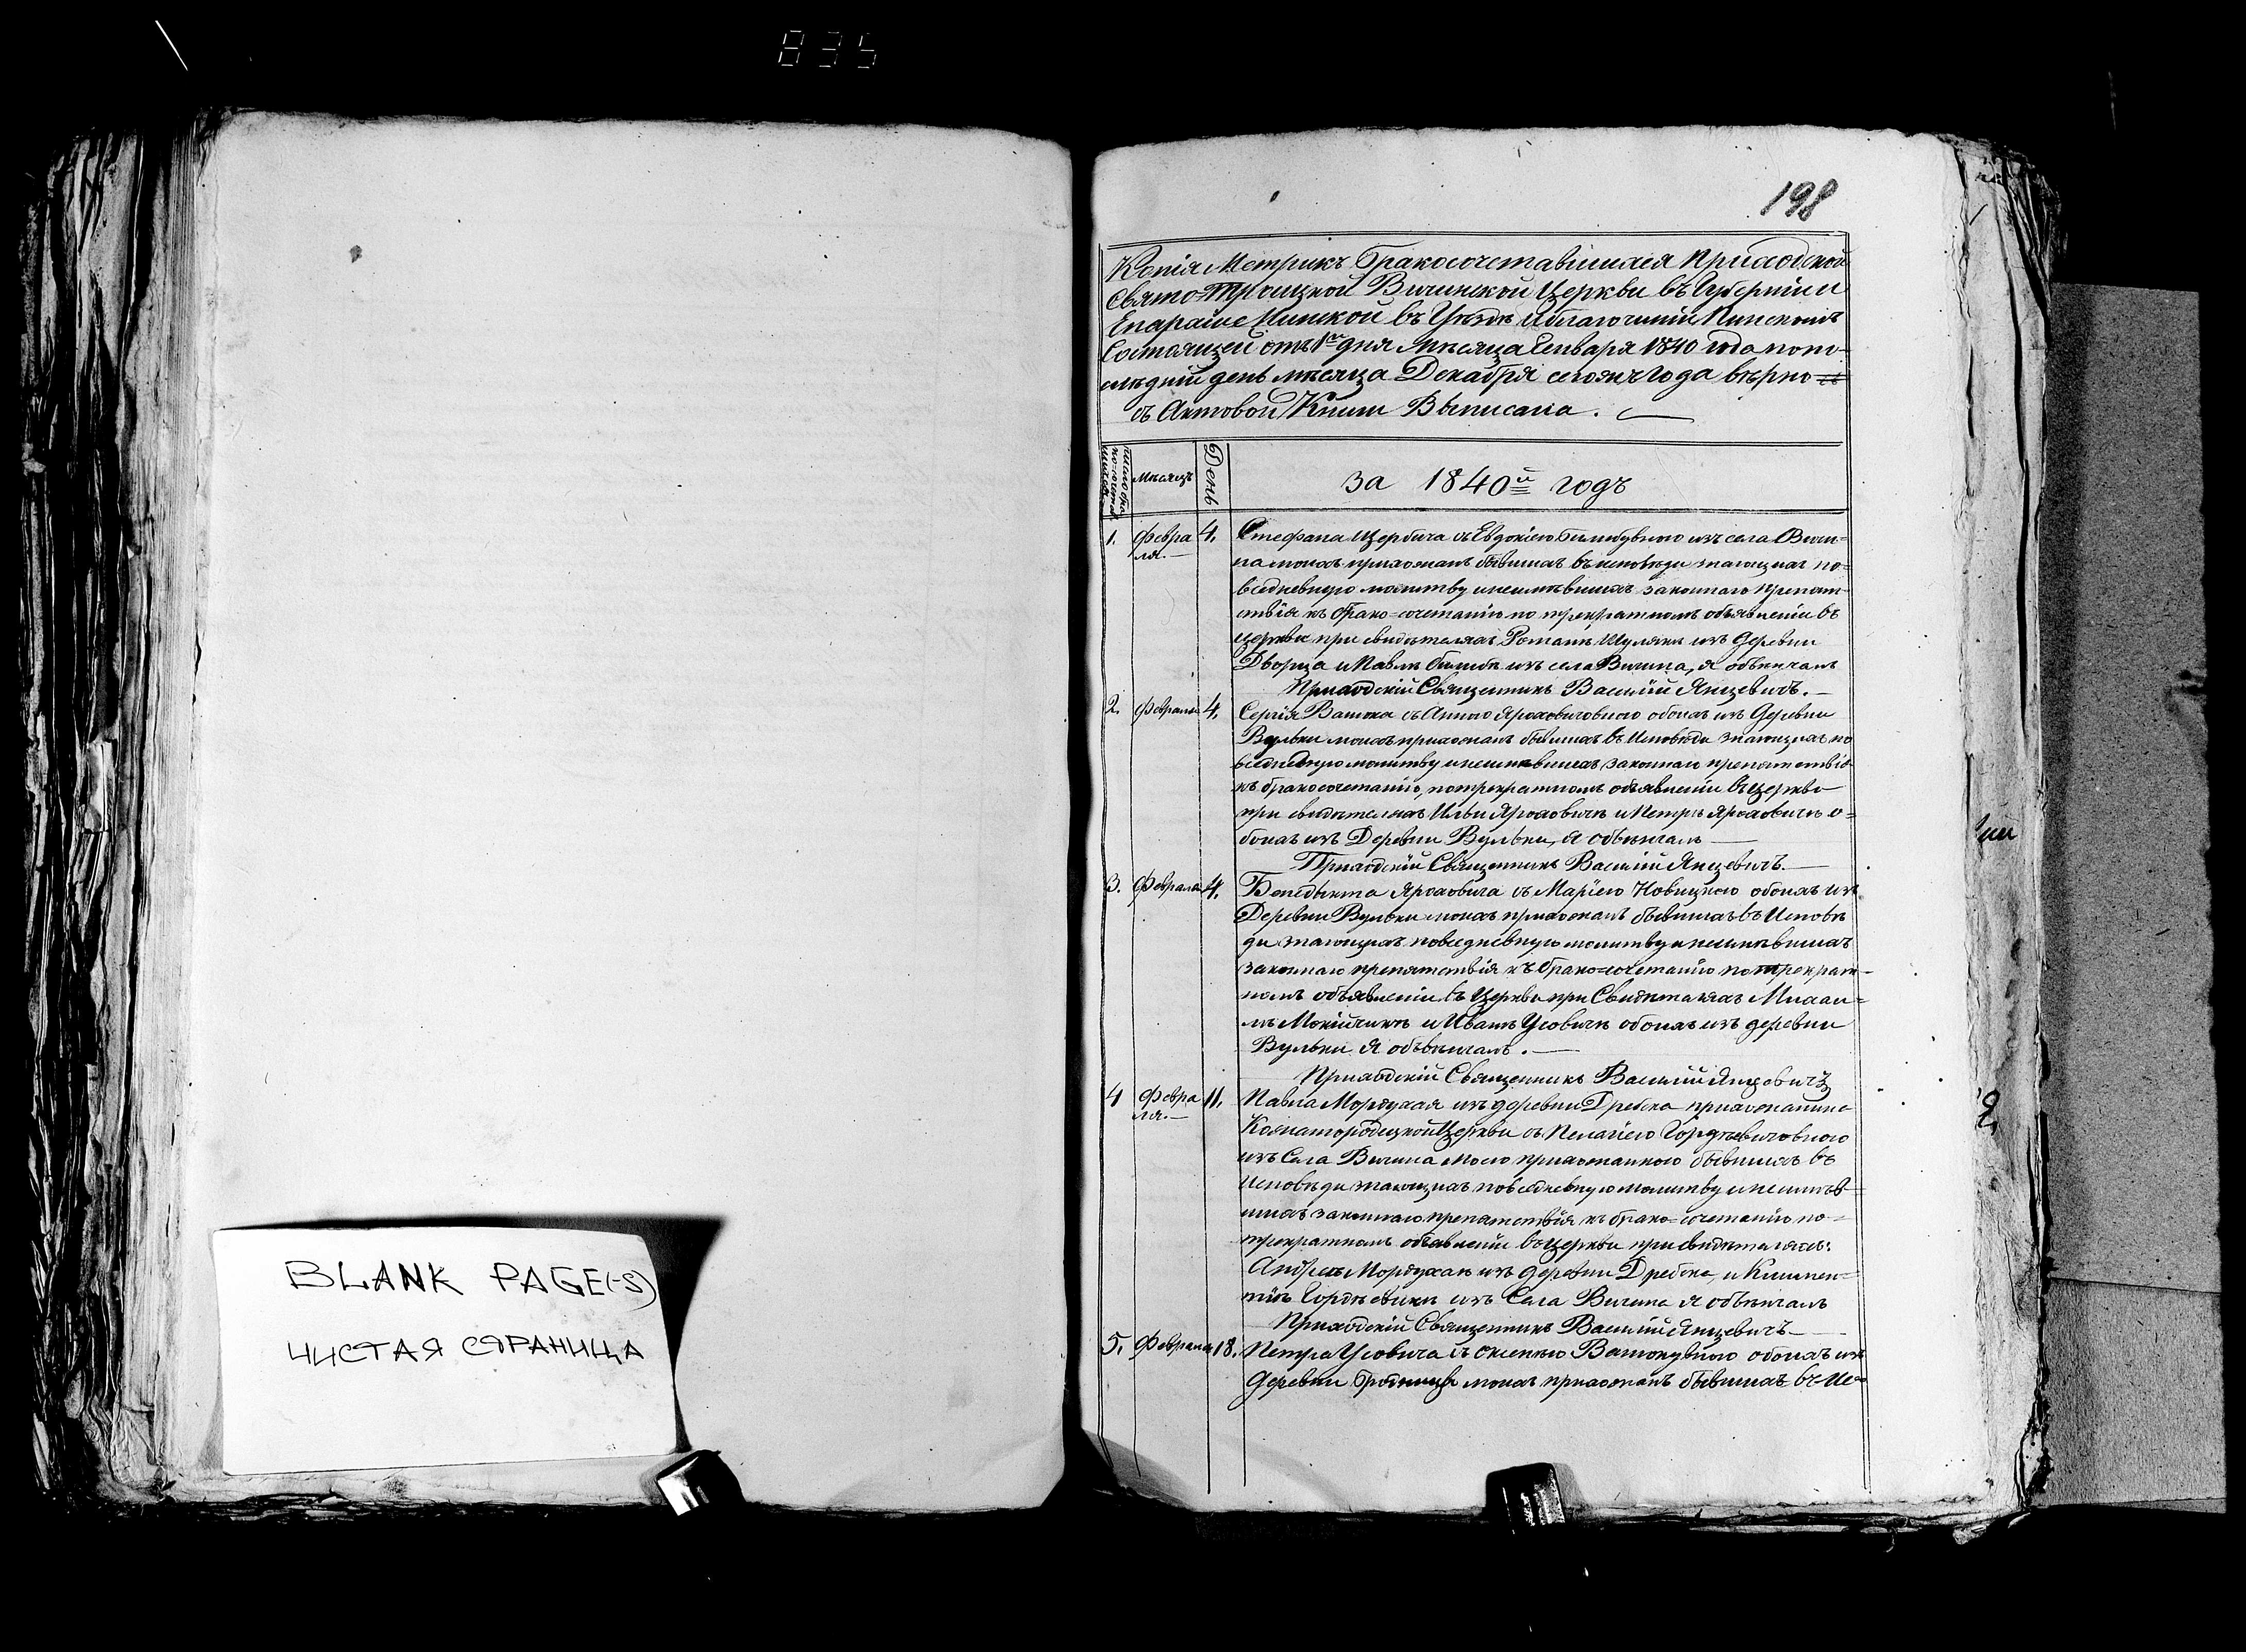 835
BLANK PAGE(-S)
ЧИСТАЯ СТРАНИЦА
198
Копія Метрикъ Бракосочетавшихся Приходской
Свято=Троицкой Вичинской Церкви въ Губерніи и
Епархіи Минской въ Уѣздѣ и благочиніи Пинскомъ
Состоящей отъ 1го дня Мѣсяца Генваря 1840 года по по-
слѣдній день мѣсяца Декабря сегожъ Года вѣрно
съ Актовой Книги Выписана.
Мѣсяцъ
День
за 1840й годъ
1. Февра 4. Стефана Щербича съ Евдокіею изъ села Вичи-
ля.— на моихъ прихожанъ бывшихъ въ исповѣди знающихъ по-
вседневную молитву и неимѣвшихъ законнаго препят-
ствія къ брако=сочетанію по трекратномъ объявленіи въ
церкви при свидѣтеляхъ Романѣ Шулякѣ изъ Деревни
Дворца и Павлѣ изъ села Вичина, я обвѣнчалъ
Приходскій Священникъ Василій Янцевичъ.—
2. Февраля 4. Сергія Вашка съ Анною Яроховичовною обоихъ изъ Деревни
Вульки моихъ прихожанъ бывшихъ въ Исповѣди знающихъ по
вседневную молитву и неимѣвшихъ законнаго препятствія
къ бракосочетанію, по трекратномъ объявленіи въ Церкви
при свидѣтеляхъ Ильи Яроховичѣ и Петрѣ Яроховичѣ о=
боихъ изъ Деревни Вульки, я обвѣнчалъ —
Приходскій Священникъ Василій Янцевичъ.—
3. Февраля 4. Бенедыкта Яроховича съ Маріею Новицкою обоихъ изъ
Деревни Вульки моихъ прихожанъ бывшихъ въ Исповѣ
ди знающихъ повседневную молитву и неимѣвшихъ
законнаго препятствія къ брако=сочетанію по трекрат-
номъ объявленіи въ Церкви при Свидѣтеляхъ Михаи=
лѣ и Иванѣ Усовичѣ обоихъ изъ деревни
Вульки я обвѣнчалъ.—
Приходскій Священникъ Василій Янцовичъ
4 Февра 11. Павла Мордухая изъ деревни Дребска прихожанина
ля.— Кожангородецкой Церкви съ Пелагіею Гордѣевичовною
изъ Села Вичина моею прихожанкою бывшихъ въ
Исповѣди знающихъ повседневную молитву и неимѣв=
шихъ законнаго препятствія къ брако=сочетанію по-
трекратномъ объявленіи въ Церкви при свидѣтеляхъ:
Андреѣ Мордухаѣ изъ деревни Дребска, и Климен=
тіѣ Гордѣевичѣ изъ Села Вичина я обвѣнчалъ
Приходскій Священникъ Василій Янцевичъ—
5. Февраля 18. Петра Усовича съ Оксеньею обоихъ изъ
Деревни моихъ прихожанъ бывшихъ въ Ис=